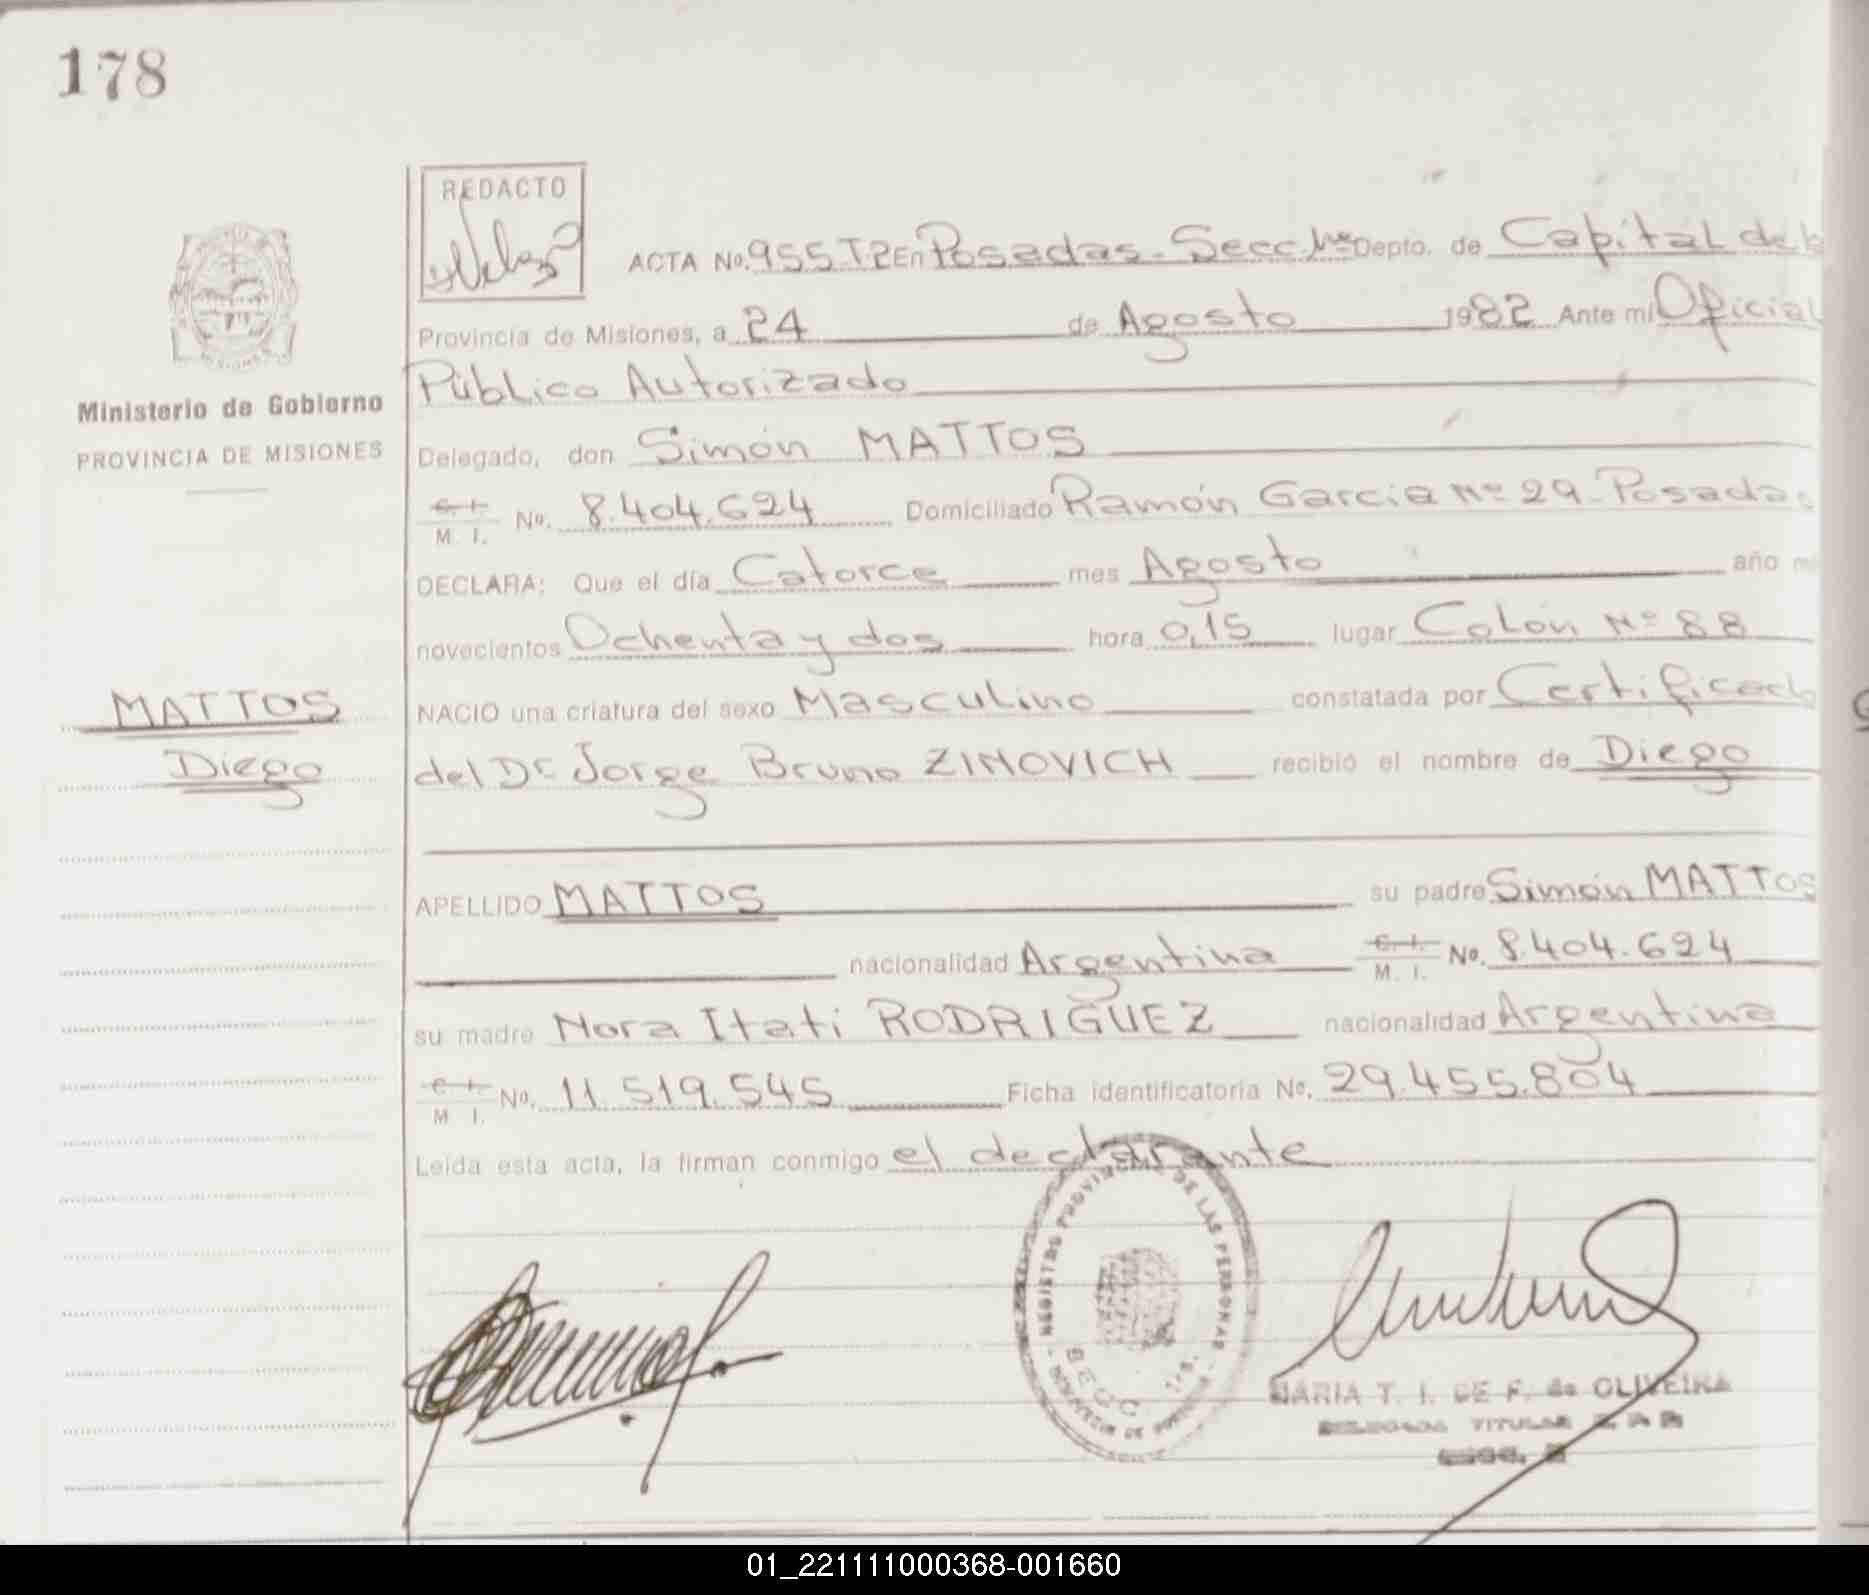 178
REDACTO
ACTA No. 955-T2 En Posadas - Secc. 1ra Depto. de Capital de la
Provincia de Misiones, a 24 de Agosto 1982 Ante mi Oficial
Público Autorizado
MISIONES
Ministerio de Gobierno
PROVINCIA DE MISIONES
Delegado, don Simón MATTOS
C. I.
M. I. No. 8.404.624 Domiciliado Ramón Garcia Nº 29 - Posadas
DECLARA: Que el día Catorce mes Agosto año mi
novecientos Ochenta y dos hora 0,15 lugar Colón Nº 88
NACIO una criatura del sexo Masculino constatada por Certificado
del Dr. Jorge Bruno ZINOVICH recibió el nombre de Diego
MATTOS
Diego
APELLIDO MATTOS su padre Simón MATTOS
nacionalidad Argentina C. I. M. I. No. 8.404.624
su madre Nora Itati RODRIGUEZ nacionalidad Argentina
C. I.
M. I. No. 11.519.545 Ficha identificatoria No. 29.455.804
Leída esta acta, la firman conmigo el declarante
REGISTRO PROVINCIAL DE LAS PERSONAS
SECC. 1ra.
MARIA T. I. DE F. de OLIVEIRA
DELEGADA TITULAR
01_221111000368-001660